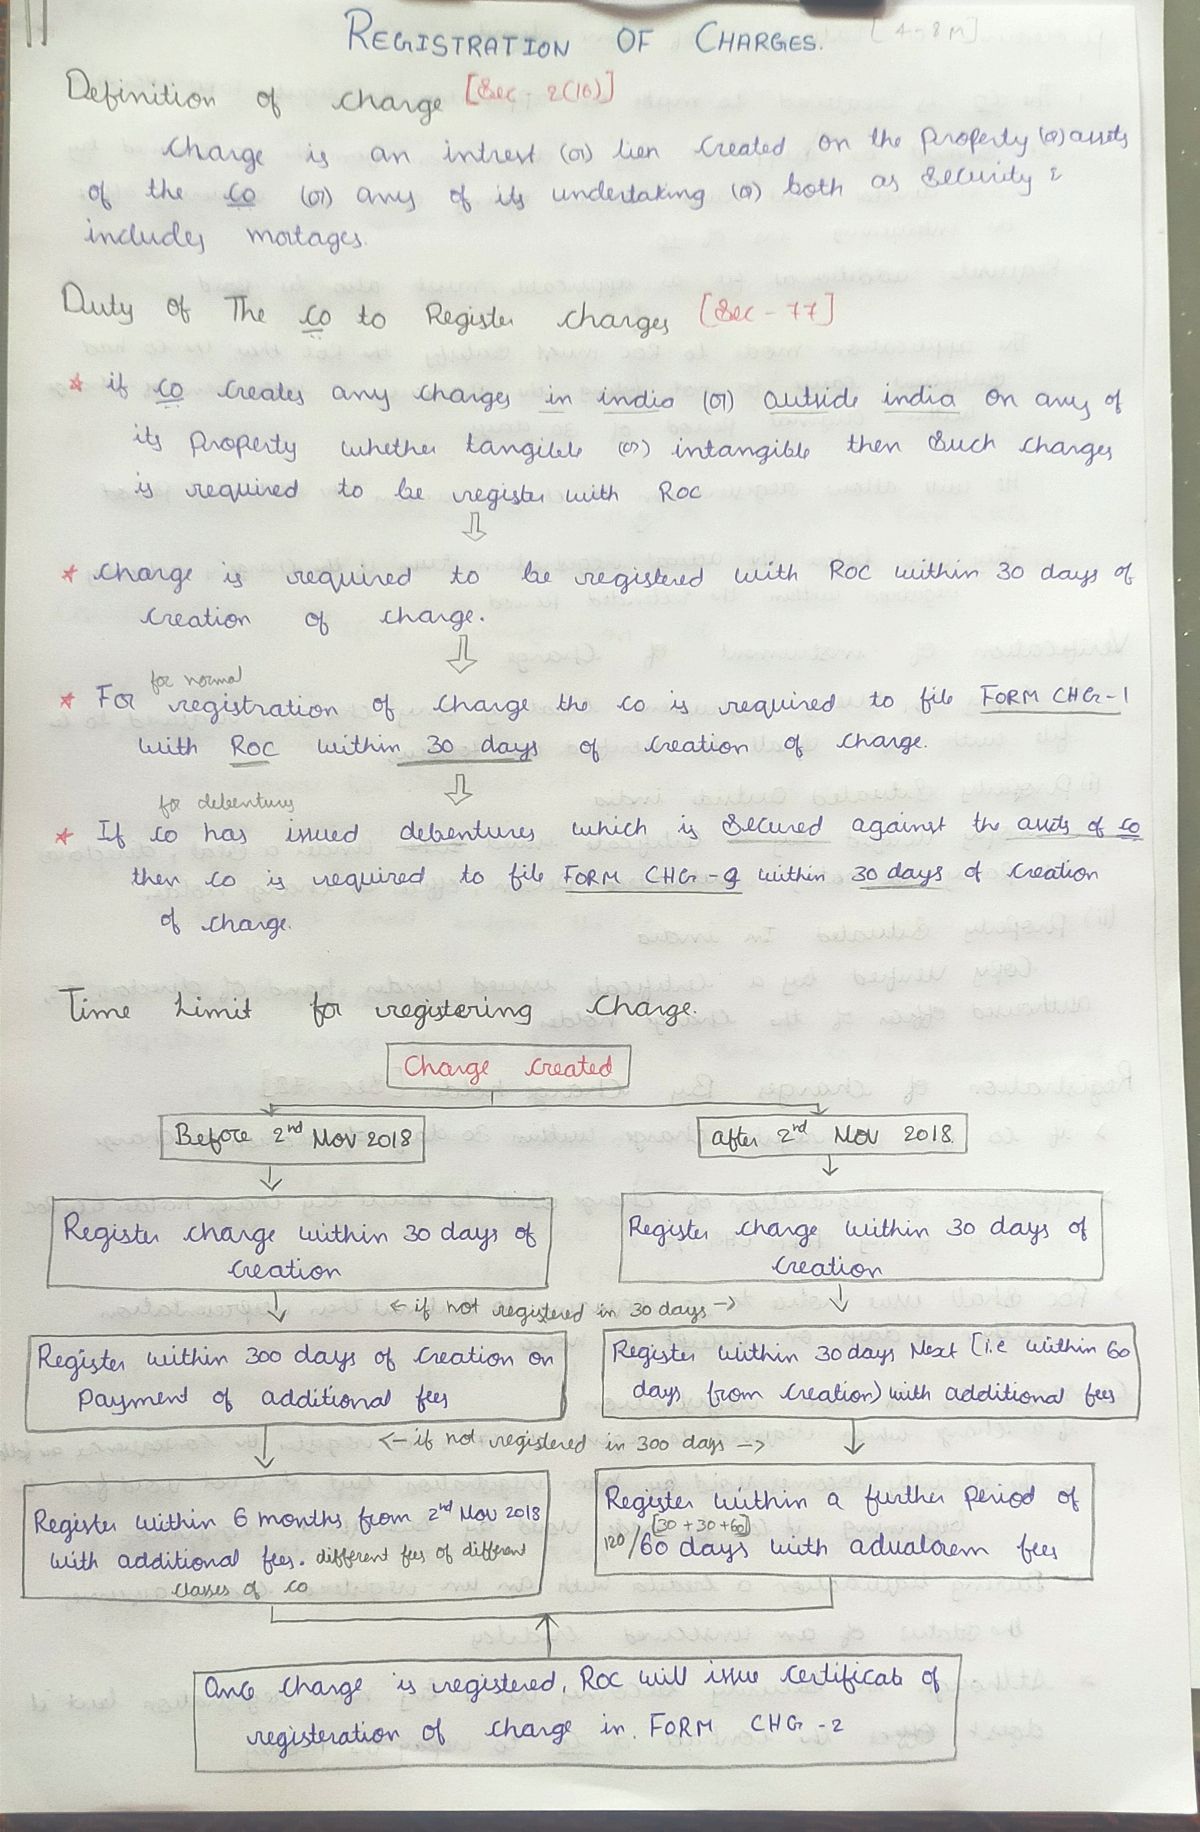 REGISTRATION OF CHARGES. [4-8M]
Definition of charge [Sec - 2(16)]
Charge is an intrest (or) lien created on the property (or) assets
of the co (or) any of its undertaking (or) both as Security &
includes mortages.
Duty of The co to Register charges [Sec - 77]
* if co creates any charges in india (or) outside india on any of
its property whether tangible (or) intangible then such charges
is required to be register with ROC
* charge is required to be registered with ROC within 30 days of
creation of charge.
for normal
* For registration of charge the co is required to file FORM CHG-1
with ROC within 30 days of creation of charge.
for debenturs
* If co has issued debentures which is Secured against the assets of co
then co is required to file FORM CHG-9 within 30 days of creation
of charge.
Time Limit for registering Charge.
Charge created
Before 2nd Nov 2018
after 2nd Nov 2018.
Register charge within 30 days of
creation
Register charge within 30 days of
creation
<- if not registered in 30 days ->
Register within 300 days of creation on
Payment of additional fees
Register within 30 days Next (i.e within 60
days from creation) with additional fees
<- if not registered in 300 days ->
Register within 6 months from 2nd Nov 2018
with additional fees. different fees of different
classes of co
Register within a further period of
[30 + 30 + 60]
120/60 days with adualorem fees
Once charge is registered, ROC will issue certificate of
registeration of charge in. FORM CHG -2